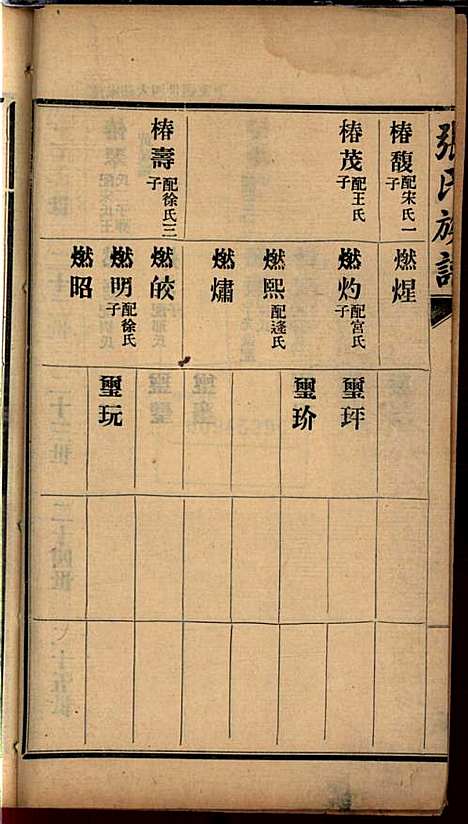 張氏族譜
椿馥 配宋氏一子
椿茂 配王氏子
椿壽 配徐氏三子
燃煋
燃灼 配宮氏子
燃熙 配逄氏
燃熽
燃皎
燃明 配徐氏子
燃昭
璽玶
璽玠
璽玩